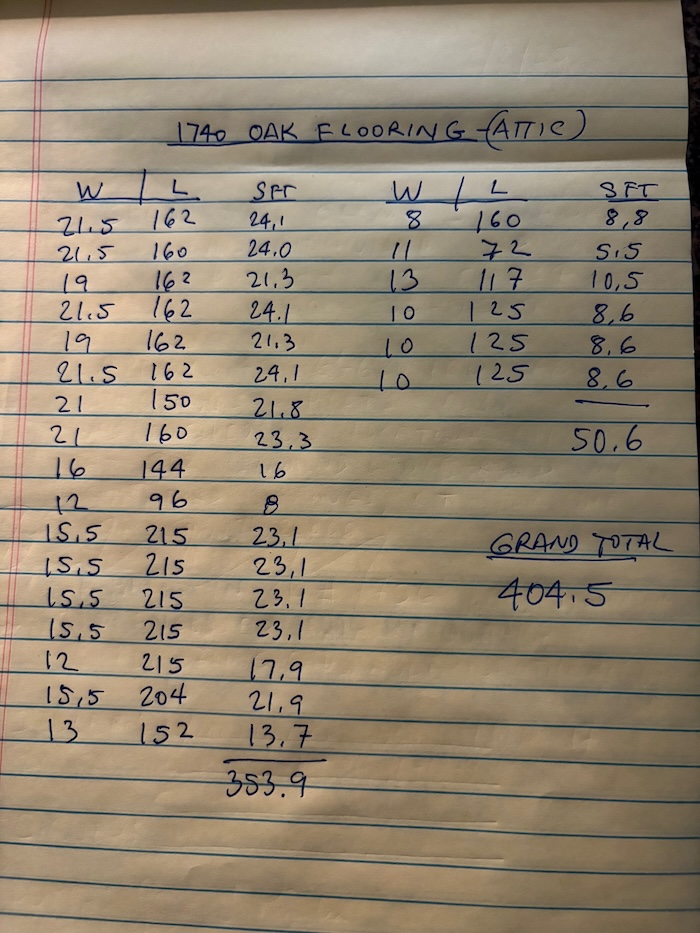 1740 OAK FLOORING -(ATTIC)
W / L SFT
21.5 162 24.1
21.5 160 24.0
19 162 21.3
21.5 162 24.1
19 162 21.3
21.5 162 24.1
21 150 21.8
21 160 23.3
16 144 16
12 96 8
15.5 215 23.1
15.5 215 23.1
15.5 215 23.1
15.5 215 23.1
12 215 17.9
15.5 204 21.9
13 152 13.7
353.9
W / L SFT
8 160 8.8
11 72 5.5
13 117 10.5
10 125 8.6
10 125 8.6
10 125 8.6
50.6
GRAND TOTAL
404.5